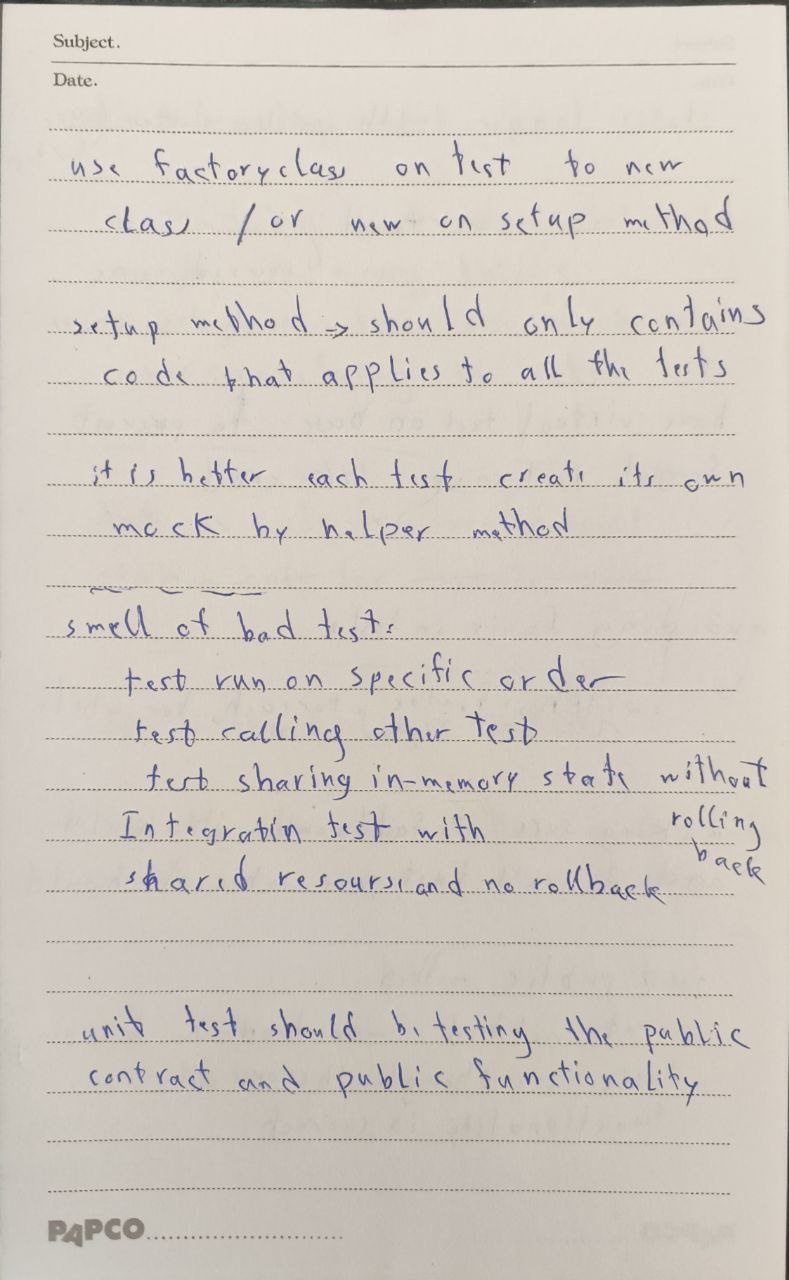 Subject.
Date.
use factory class on test to new
class / or new on setup method
setup method → should only contains
code that applies to all the tests
it is better each test create its own
mock by helper method
smell of bad test:
test run on specific order
test calling other test
test sharing in-memory state without
rolling
back
Integratin test with
shared resourse and no rollback
unit test should be testing the public
contract and public functionality
PAPCO